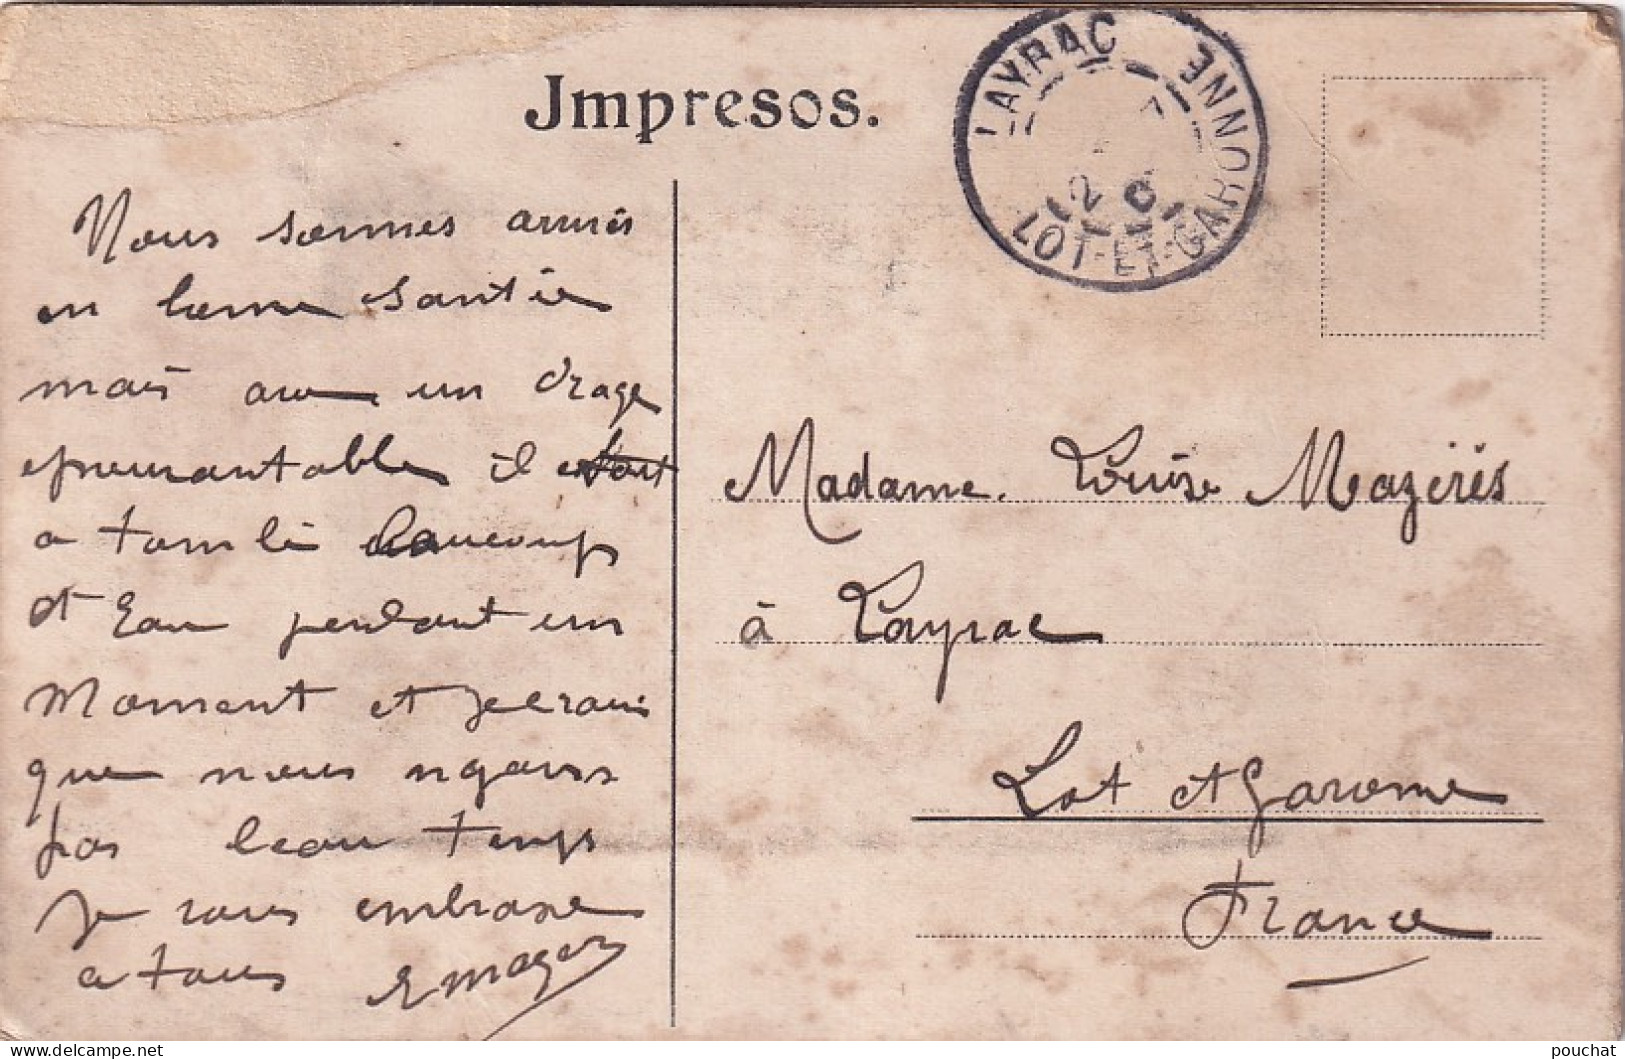 Jmpresos.
LAYRAC
LOT-ET-GARONNE
Nous sommes arrivés
en bonne santée
mais avec un orage
epouvantable il
a tombé beaucoup
d'Eau pendant un
Moment et je crains
que nous n'ayons
pas beau temps
Je vous embrasse
a tous E Mazer
Madame Louise Mazérés
à Layrac
Lot et Garonne
France
pouchat